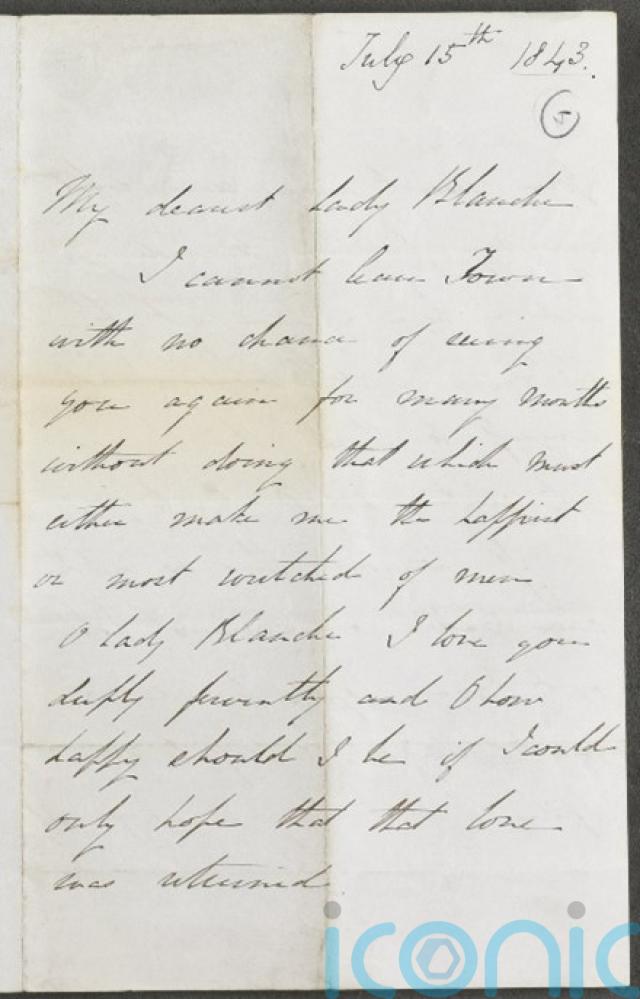 July 15th 1843.
5
My dearest Lady Blanche
I cannot leave Town
with no chance of seeing
you again for many months
without doing that which must
either make me the happiest
or most wretched of men
O Lady Blanche I love you
deeply fervently and O how
happy should I be if I could
only hope that that love
was returned
iconic